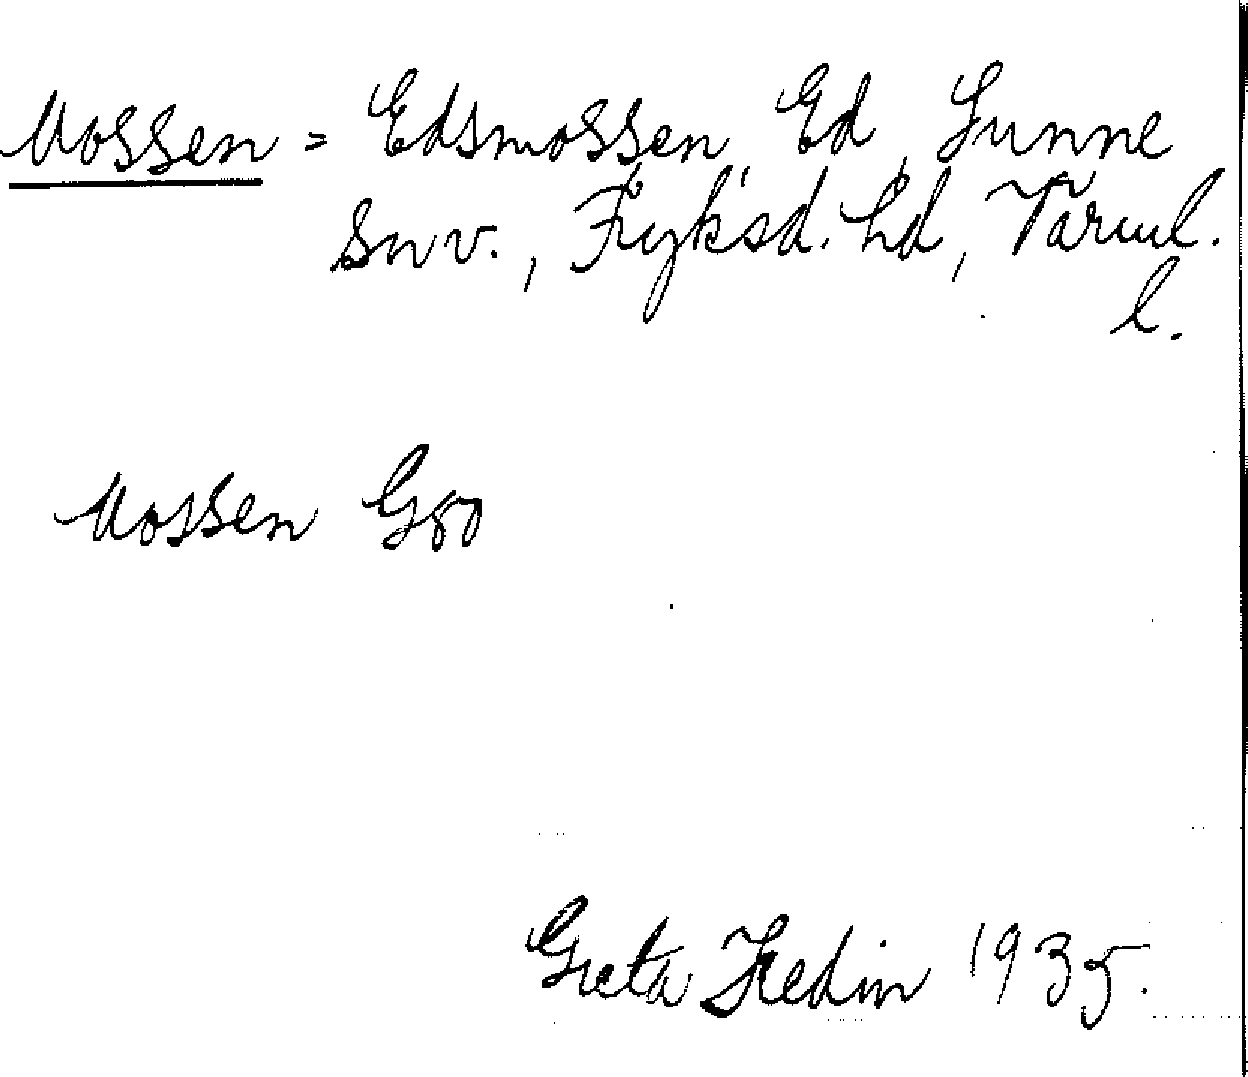 Mossen = Edsmossen, Ed, Sunne
Snv., Fryksd. hd, Värml.
l.
Mossen G80
Greta Hedin 1935.